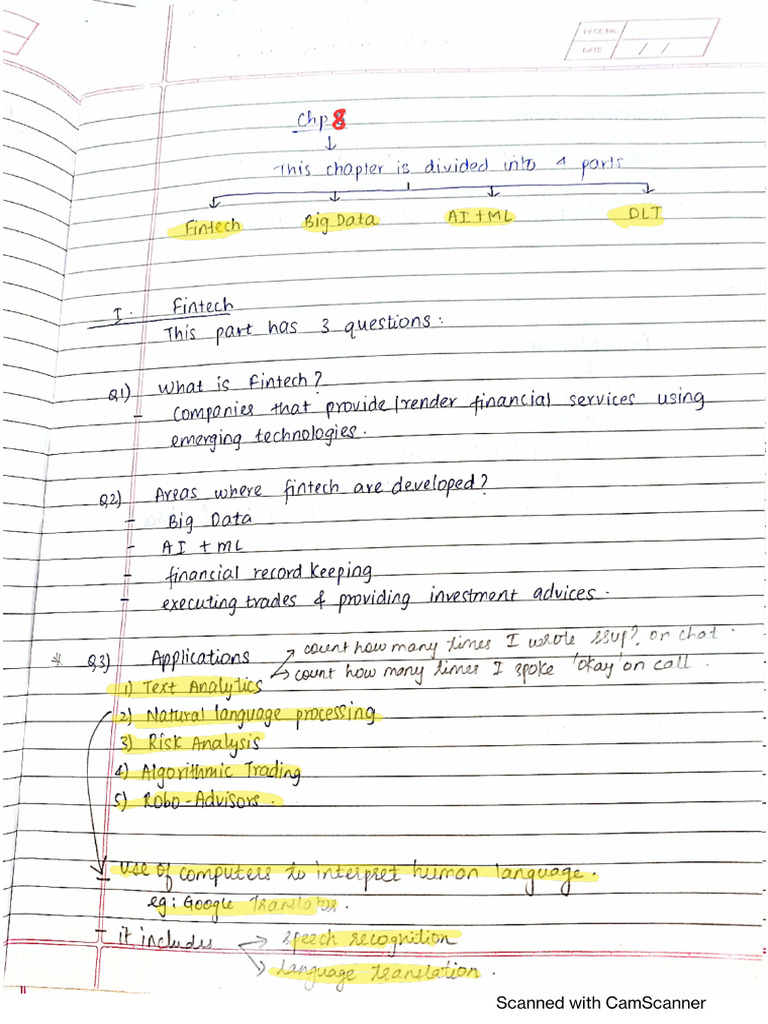 PAGE NO.
DATE / /
Chp 8
This chapter is divided into 4 parts
Fintech Big Data AI + ML DLT
I. Fintech
This part has 3 questions:
Q1) What is Fintech?
- Companies that provide/render financial services using
emerging technologies.
Q2) Areas where fintech are developed?
- Big Data
- AI + ML
- financial record keeping
- executing trades & providing investment advices.
* Q3) Applications
count how many times I wrote ssup?, on chat.
1) Text Analytics
count how many times I spoke 'okay' on call.
2) Natural language processing
3) Risk Analysis
4) Algorithmic Trading
5) Robo-Advisors.
- use of computers to interpret human language.
eg: Google Translator.
- it includes speech recognition
language translation.
Scanned with CamScanner